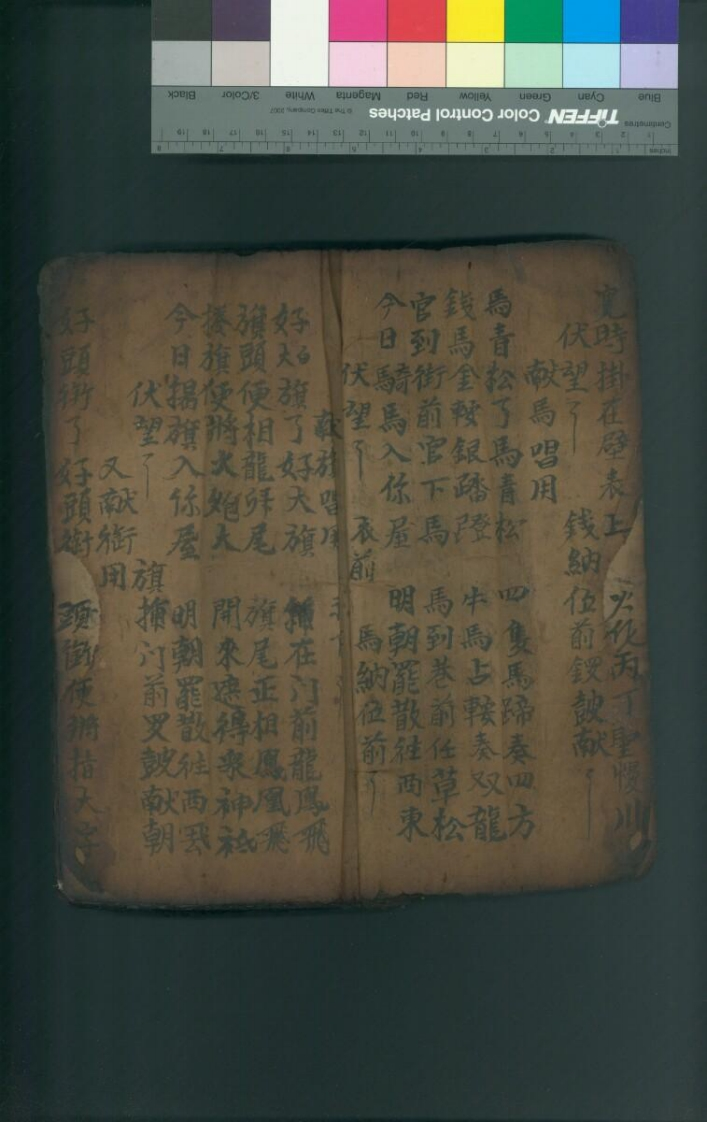 時掛在壁表上 火化丙丁聖
伏望了 錢納位前鑼鼓献
献馬唱用
馬青松了馬青松 四隻馬蹄奏四方
錢馬金鞍銀踏蹬 牛馬占鞍奏双龍
官到街前官下馬 馬到巷前任草松
今日騎馬入你屋 明朝罷散往西東
伏望了 衣前 馬納位前了
献旗唱用
好旗了好大旗 在门前龍鳳飛
旗頭便相龍牙尾 旗尾正相鳳凰飛
旗便將火炮大 開來速得衆神祗
今日揭旗入你屋 明朝罷散往西
伏望了 旗 门前罗鼓献朝
又献衙用
好頭衙了好頭衙 頭衙便將指大字
Inches
Centimetres
TIFFEN Color Control Patches
© The Tiffen Company, 2007
Blue Cyan Green Yellow Red Magenta White 3/Color Black